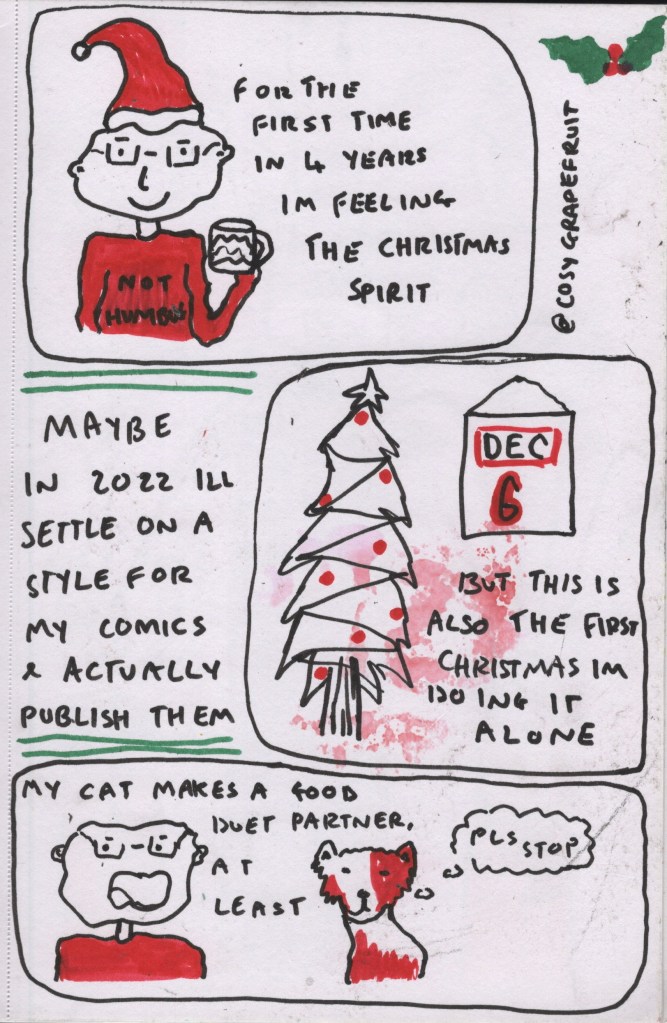 FOR THE
FIRST TIME
IN 4 YEARS
IM FEELING
THE CHRISTMAS
SPIRIT
NOT
HUMBUG
@COSYGRAPEFRUIT
MAYBE
IN 2022 ILL
SETTLE ON A
STYLE FOR
MY COMICS
& ACTUALLY
PUBLISH THEM
DEC
6
BUT THIS IS
ALSO THE FIRST
CHRISTMAS IM
DOING IT
ALONE
MY CAT MAKES A GOOD
DUET PARTNER.
AT
LEAST
PLS
STOP